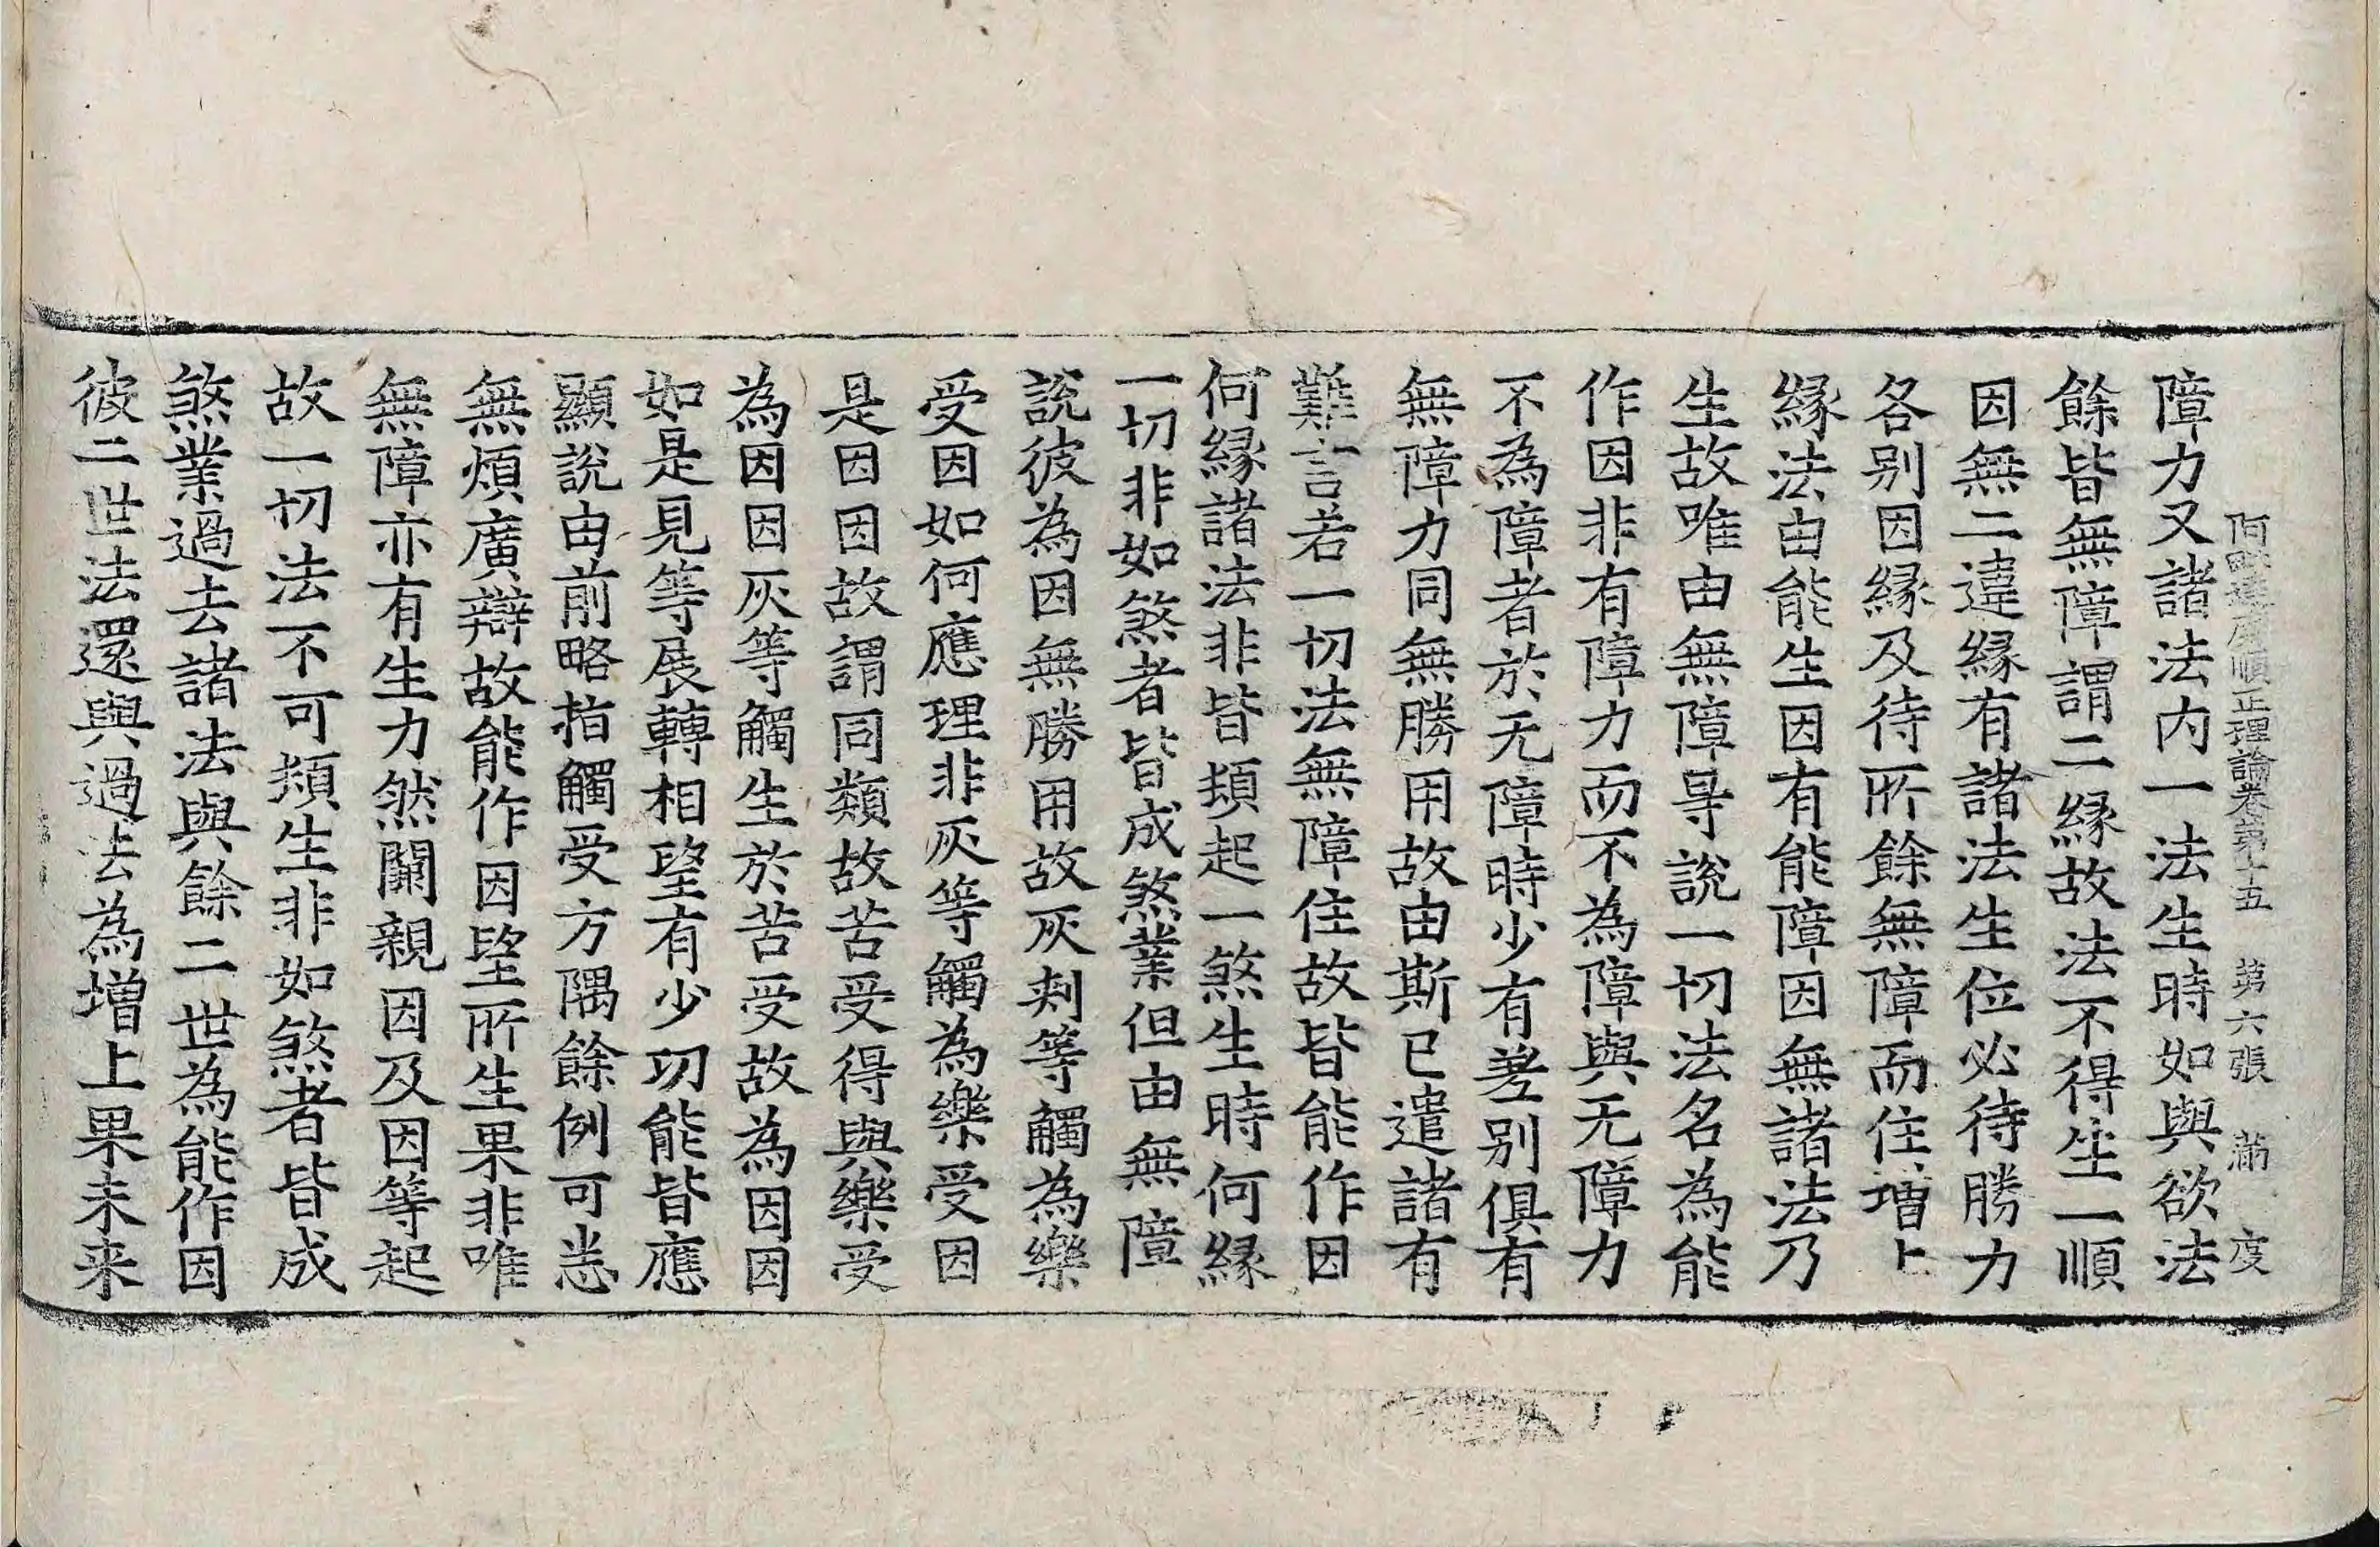 阿毗達磨順正理論卷第十五　第六張　滿　度
障力又諸法内一法生時如與欲法
餘皆無障謂二緣故法不得生一順
因無二違緣有諸法生位必待勝力
各别因緣及待所餘無障而住增上
緣法由能生因有能障因無諸法乃
生故唯由無障㝵說一切法名為能
作因非有障力而不為障與无障力
不為障者於无障時少有差别俱有
無障力同無勝用故由斯已遣諸有
難言若一切法無障住故皆能作因
何緣諸法非皆頓起一煞生時何緣
一切非如煞者皆成煞業但由無障
說彼為因無勝用故灰刾等觸為樂
受因如何應理非灰等觸為樂受因
是因因故謂同類故苦受得與樂受
為因因灰等觸生於苦受故為因因
如是見等展轉相望有少功能皆應
顯說由前略指觸受方隅餘例可悉
無煩廣辯故能作因望所生果非唯
無障亦有生力然闕親因及因等起
故一切法不可頓生非如煞者皆成
煞業過去諸法與餘二世為能作因
彼二世法還與過去為增上果未来